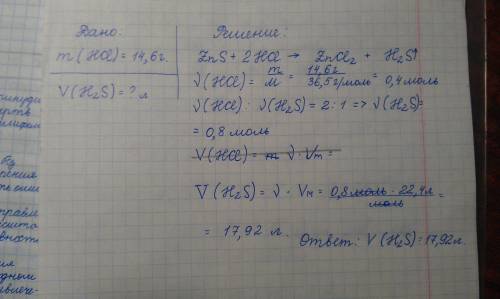 Дано:
m (HCl) = 14,6г.
V(H₂S) = ? л
Решение:
ZnS + 2HCl → ZnCl₂ + H₂S↑
ν(HCl) = m/M = 14,6г/36,5г/моль = 0,4 моль
ν(HCl) : ν(H₂S) = 2:1 => ν(H₂S)=
= 0,8 моль
V(HCl) = m ν · Vm =
V(H₂S) = ν · Vм = 0,8 моль · 22,4л/моль =
= 17,92 л.
Ответ: V(H₂S) = 17,92л.